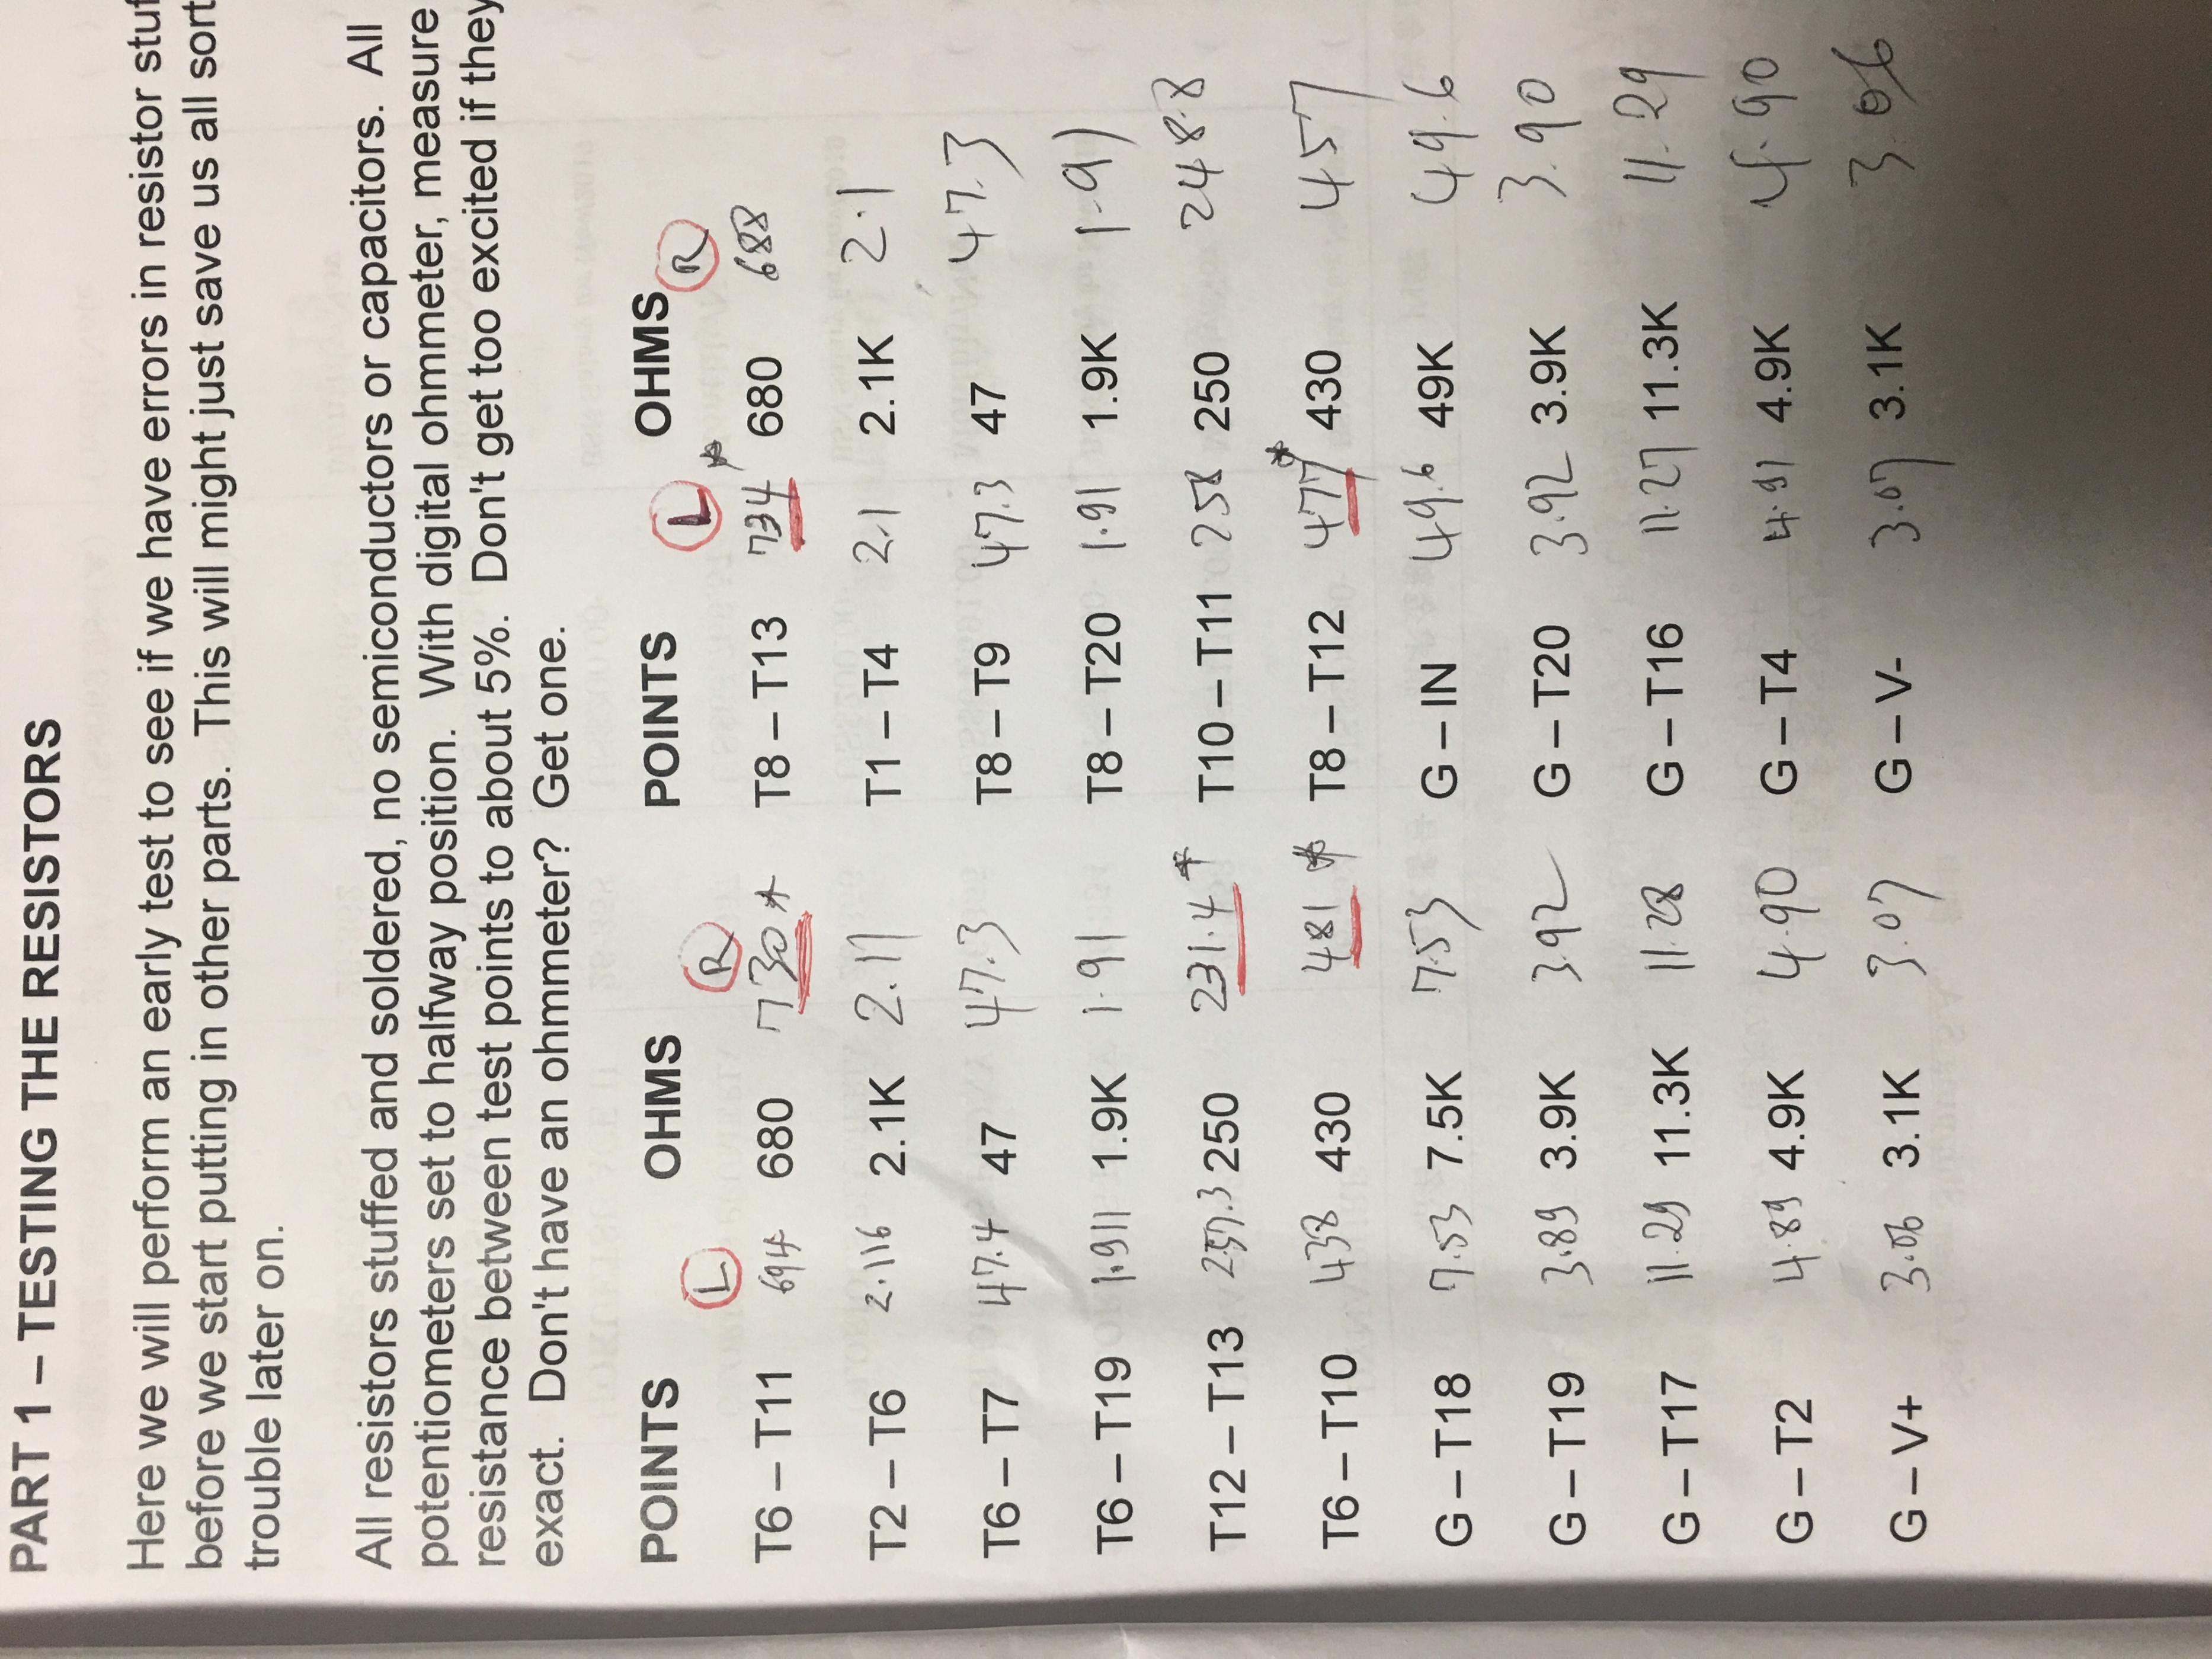 PART 1 – TESTING THE RESISTORS
Here we will perform an early test to see if we have errors in resistor stuf
before we start putting in other parts. This will might just save us all sort
trouble later on.
All resistors stuffed and soldered, no semiconductors or capacitors. All
potentiometers set to halfway position. With digital ohmmeter, measure
resistance between test points to about 5%. Don't get too excited if they
exact. Don't have an ohmmeter? Get one.
POINTS L OHMS R POINTS L OHMS R
T6 – T11 694 680 730* T8 – T13 734* 680 688
T2 – T6 2.116 2.1K 2.11 T1 – T4 2.1 2.1K 2.1
T6 – T7 47.4 47 47.3 T8 – T9 47.3 47 47.3
T6 – T19 1.911 1.9K 1.91 T8 – T20 1.91 1.9K 1.91
T12 – T13 250 231.4* T10 – T11 258 250 248.8
T6 – T10 438 430 481* T8 – T12 477* 430 457
G – T18 7.53 7.5K 7.53 G – IN 49.6 49K 49.6
G – T19 3.89 3.9K 3.92 G – T20 3.92 3.9K 3.90
G – T17 11.29 11.3K 11.28 G – T16 11.27 11.3K 11.29
G – T2 4.89 4.9K 4.90 G – T4 4.91 4.9K 4.90
G – V+ 3.06 3.1K 3.07 G – V- 3.07 3.1K 3.06